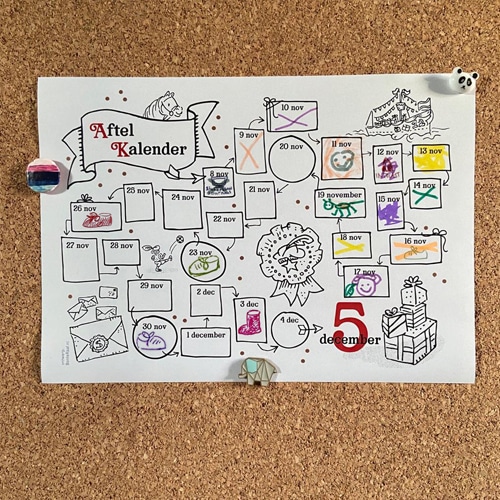 Aftel
Kalender
8 nov
9 nov
10 nov
11 nov
12 nov
13 nov
14 nov
15 nov
16 nov
17 nov
18 nov
19 november
20 nov
21 nov
22 nov
23 nov
24 nov
25 nov
26 nov
27 nov
28 nov
29 nov
30 nov
1 december
2 dec
3 dec
4 dec
5
december